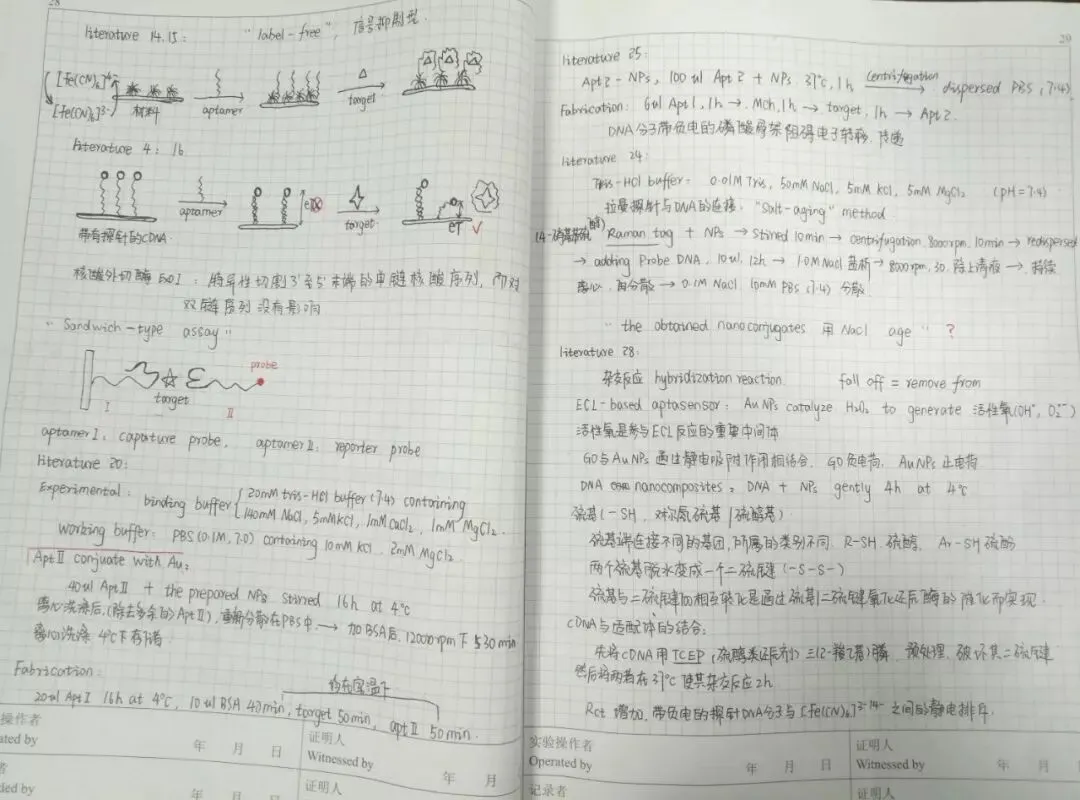 28
literature 14.15: "label-free", 信号抑制型.
[Fe(CN)₆]⁴⁻
[Fe(CN)₆]³⁻
材料
aptamer
target
literature 4: 16
aptamer
eT
target
eT
带有探针的cDNA.
核酸外切酶 ExoI: 特异性切割3'至5'末端的单链核酸序列, 而对
双链序列没有影响
"Sandwich-type assay"
probe
target
I
II
aptamer I: capature probe, aptamer II: reporter probe
literature 20:
Experimental: binding buffer { 20mM tris-HCl buffer (7.4) containing
140mM NaCl, 5mM KCl, 1mM CaCl₂, 1mM MgCl₂.
working buffer: PBS (0.1M, 7.0) containing 10mM KCl, 2mM MgCl₂.
Apt II conjuate with Au:
40ul Apt II + the prepared NPs stirred 16h at 4℃
离心洗涤后, (除去多余的Apt II), 重新分散在PBS中. → 加BSA后, 12000rpm下 30min
离心洗涤 4℃下存储.
Fabrication:
均在室温下
20ul Apt I 16h at 4℃, 10ul BSA 40min, target 50min, apt II 50min.
操作者
ated by
年 月 日
证明人
Witnessed by
年 月
者
ded by
年 月 日
证明人
29
literature 25:
Apt2-NPs, 100ul Apt2 + NPs 37℃, 1h centrifugation → dispersed PBS (7.4).
Fabrication: 6ul Apt1, 1h → Mch, 1h → target, 1h → Apt2.
DNA分子带负电的磷酸骨架阻碍电子转移.传递
literature 24:
Tris-HCl buffer: 0.01M Tris, 50mM NaCl, 5mM KCl, 5mM MgCl₂ (pH=7.4)
拉曼探针与DNA的连接: "salt-aging" method
Raman tag + NPs → stirred 10min → centrifugation 8000rpm, 10min → redispersed
→ adding Probe DNA, 10ul, 12h → 1.0M NaCl 盐析 → 8000rpm, 30. 除上清液 → 持续
离心, 再分散 → 0.1M NaCl 10mM PBS (7.4) 分散.
"the obtained nanoconjugates 用 NaCl age" ?
literature 28:
杂交反应 hybridization reaction. fall off = remove from
ECL-based aptasensor: AuNPs catalyze H₂O₂ to generate 活性氧(OH˙, O₂˙⁻)
活性氧是参与ECL反应的重要中间体
GO与AuNPs通过静电吸附作用相结合. GO负电荷, AuNPs正电荷
DNA nanocomposites: DNA + NPs gently 4h at 4℃
巯基 (-SH,
巯基端连接不同的基团, 所属的类别不同. R-SH 硫醇, Ar-SH 硫酚
两个巯基脱水变成一个二硫键 (-S-S-)
巯基与二硫键的相互转化是通过巯基/二硫键氧化还原酶的催化而实现.
cDNA与适配体的结合:
先将cDNA用TCEP (硫醇类还原剂) 三(2-羧乙基)膦 预处理, 破坏其二硫键
然后将两者在37℃使其杂交反应2h
Rct 增加, 带负电的探针DNA分子与[Fe(CN)₆]³⁻/⁴⁻之间的静电排斥.
实验操作者
Operated by
年 月 日
证明人
Witnessed by
年 月
记录者
证明人